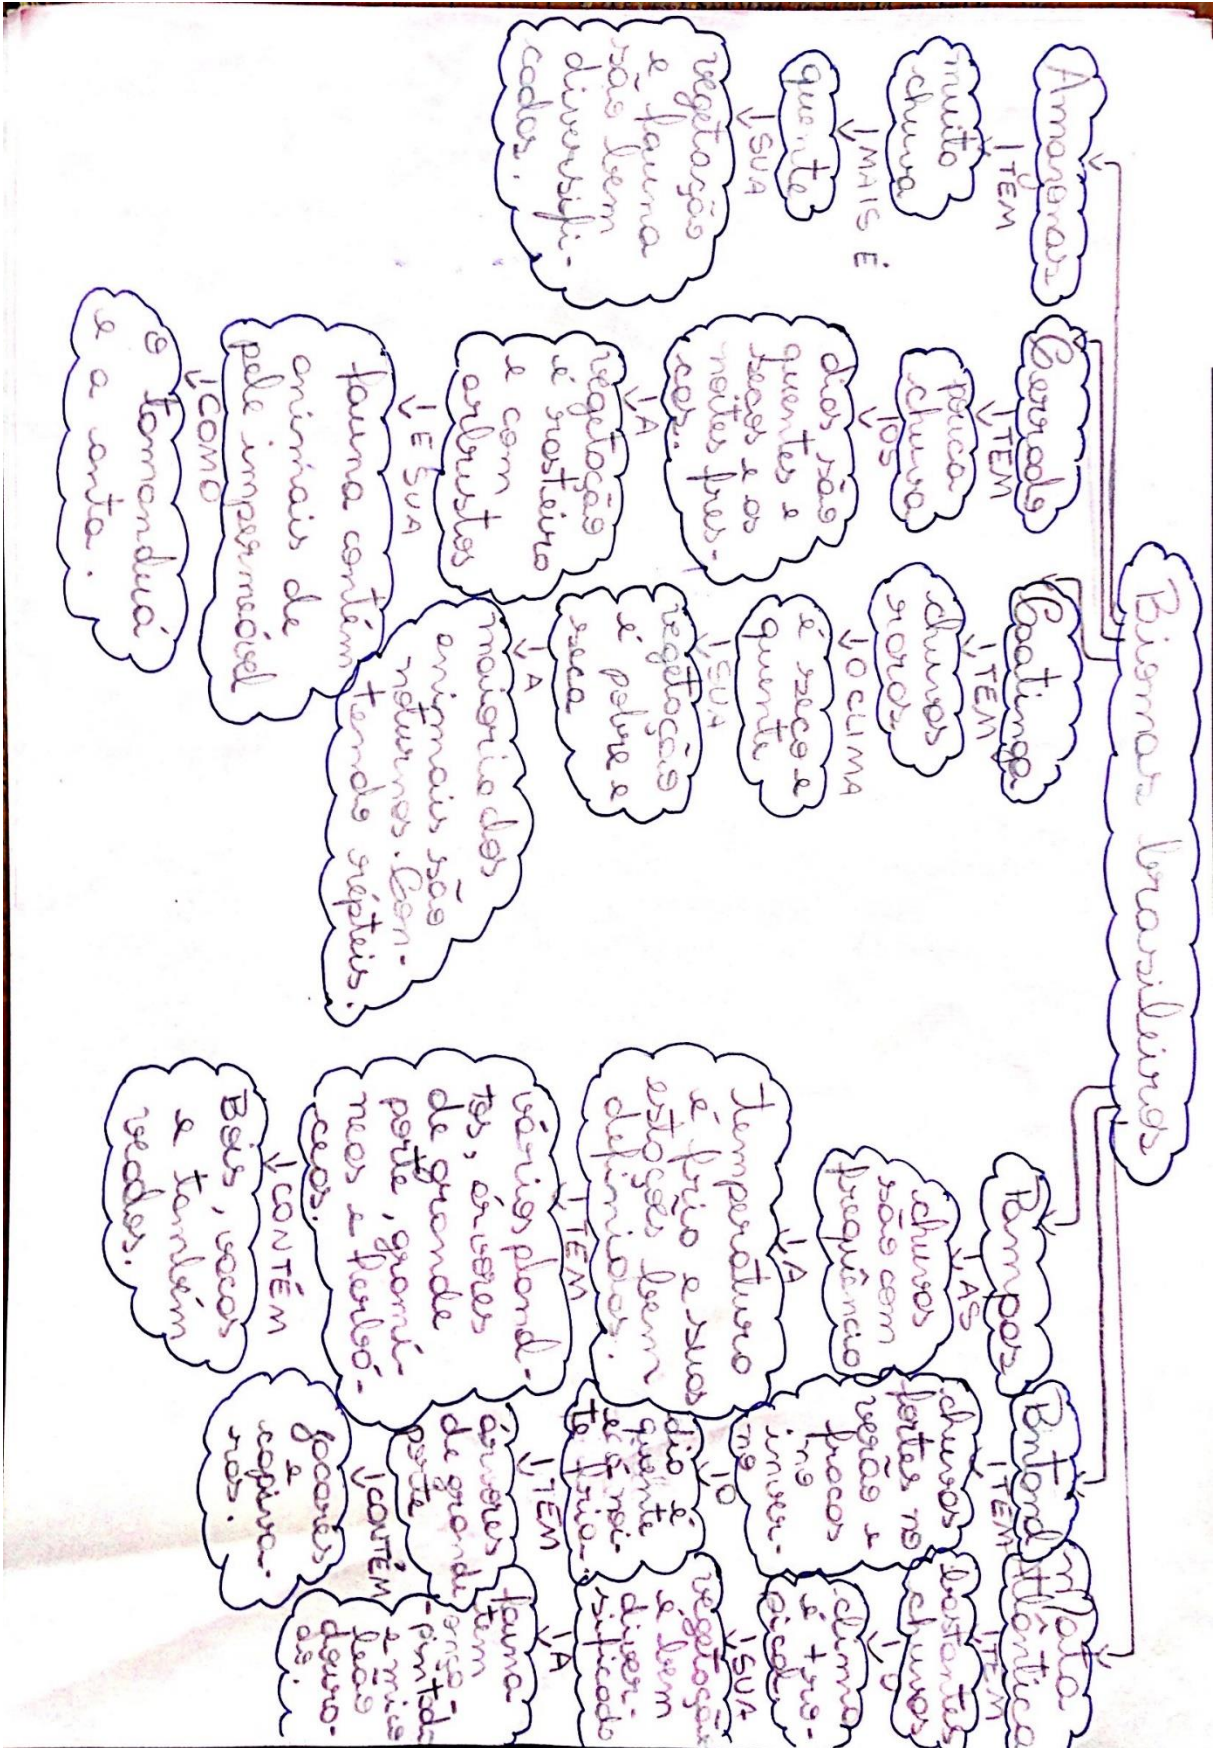 Biomas brasileiros
Amazonas
TEM
muita
chuva
MAIS É
quente
SUA
vegetação
e fauna
são bem
diversifi-
cadas.
Cerrado
TEM
pouca
chuva
OS
dias são
quentes e
secos e as
noites fres-
cas.
A
vegetação
é rasteira
e com
arbustos
E SUA
fauna contém
animais de
pele impermeável
COMO
o tamanduá
e a anta.
Caatinga
TEM
chuvas
raras
O CLIMA
é seco e
quente
SUA
vegetação
é pobre e
seca
A
maioria dos
animais são
noturnos. Con-
tendo répteis.
Pampas
AS
chuvas
são com
frequência
A
temperatura
é fria e suas
estações bem
definidas.
TEM
várias plan-
tas, árvores
de grande
porte, gramí-
neas e herbá-
ceas.
CONTÉM
Bois, vacas
e também
veados.
Pantanal
TEM
chuvas
fortes no
verão e
fracas
no
inver-
no
O
dia é
quente
e a noi-
te fria.
TEM
árvores
de grande
porte
CONTÉM
jacarés
e
capiva-
ras.
Mata
Atlântica
TEM
bastantes
chuvas
O
clima
é tro-
pical
SUA
vegetação
é bem
diver-
sificada
A
fauna
tem
onça-
-pintada
e mico
leão
doura-
do.